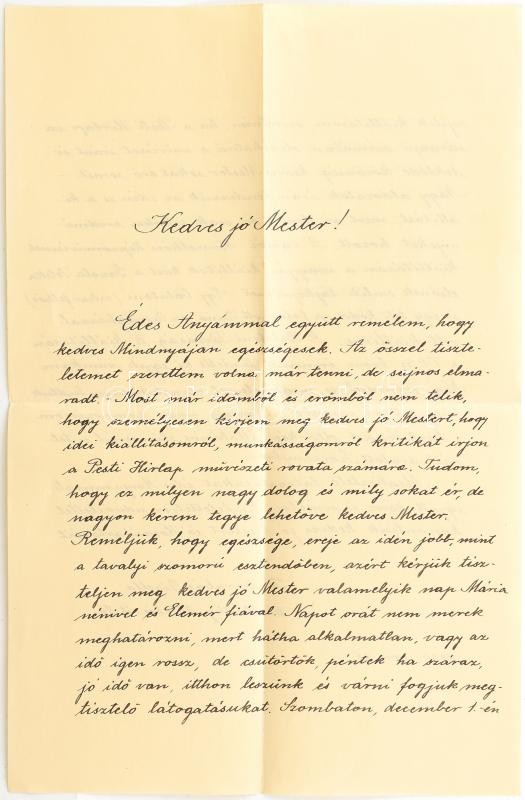 Kedves jó Mester!
Édes Anyámmal együtt remélem, hogy
kedves Mindnyájan egészségesek. Az ősszel tiszte-
letemet szerettem volna már tenni, de sajnos elma-
radt. Most már időmből és erőmből nem telik,
hogy személyesen kérjem meg kedves jó Mestert, hogy
idei kiállításomról, munkásságomról kritikát írjon
a Pesti Hirlap művészeti rovata számára. Tudom,
hogy ez milyen nagy dolog és mily sokat ér, de
nagyon kérem tegye lehetővé kedves Mester.
Reméljük, hogy egészsége, ereje az idén jobb, mint
a tavalyi szomorú esztendőben, azért kérjük tisz-
teljen meg kedves jó Mester valamelyik nap Mária
nénivel és Elemér fiával. Napot órát nem merek
meghatározni, mert hátha alkalmatlan, vagy az
idő igen rossz, de csütörtök, péntek ha száraz,
jó idő van, itthon leszünk és várni fogjuk meg-
tisztelő látogatásukat. Szombaton, december 1.-én